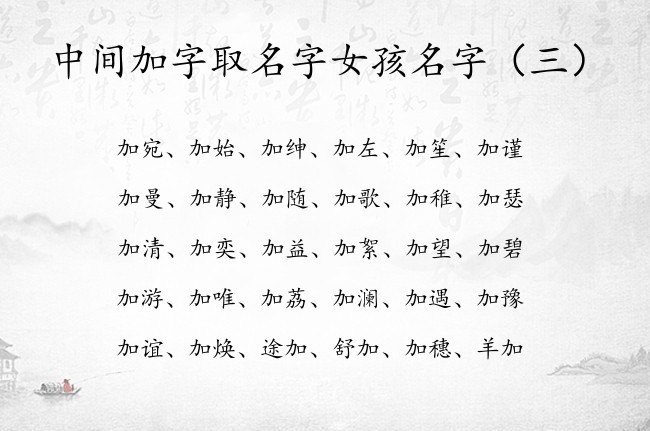 中间加字取名字女孩名字（三）
加宛、加始、加绅、加左、加笙、加谨
加曼、加静、加随、加歌、加稚、加瑟
加清、加奕、加益、加絮、加望、加碧
加游、加唯、加荔、加澜、加遇、加豫
加谊、加焕、途加、舒加、加穗、羊加